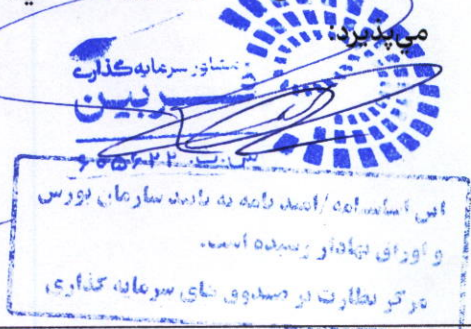 می‌پذیرد:
مشاور سرمایه‌گذاری
این اساسنامه / امید نامه به تایید سازمان بورس
و اوراق بهادار رسیده است.
مرکز نظارت بر صندوق های سرمایه گذاری